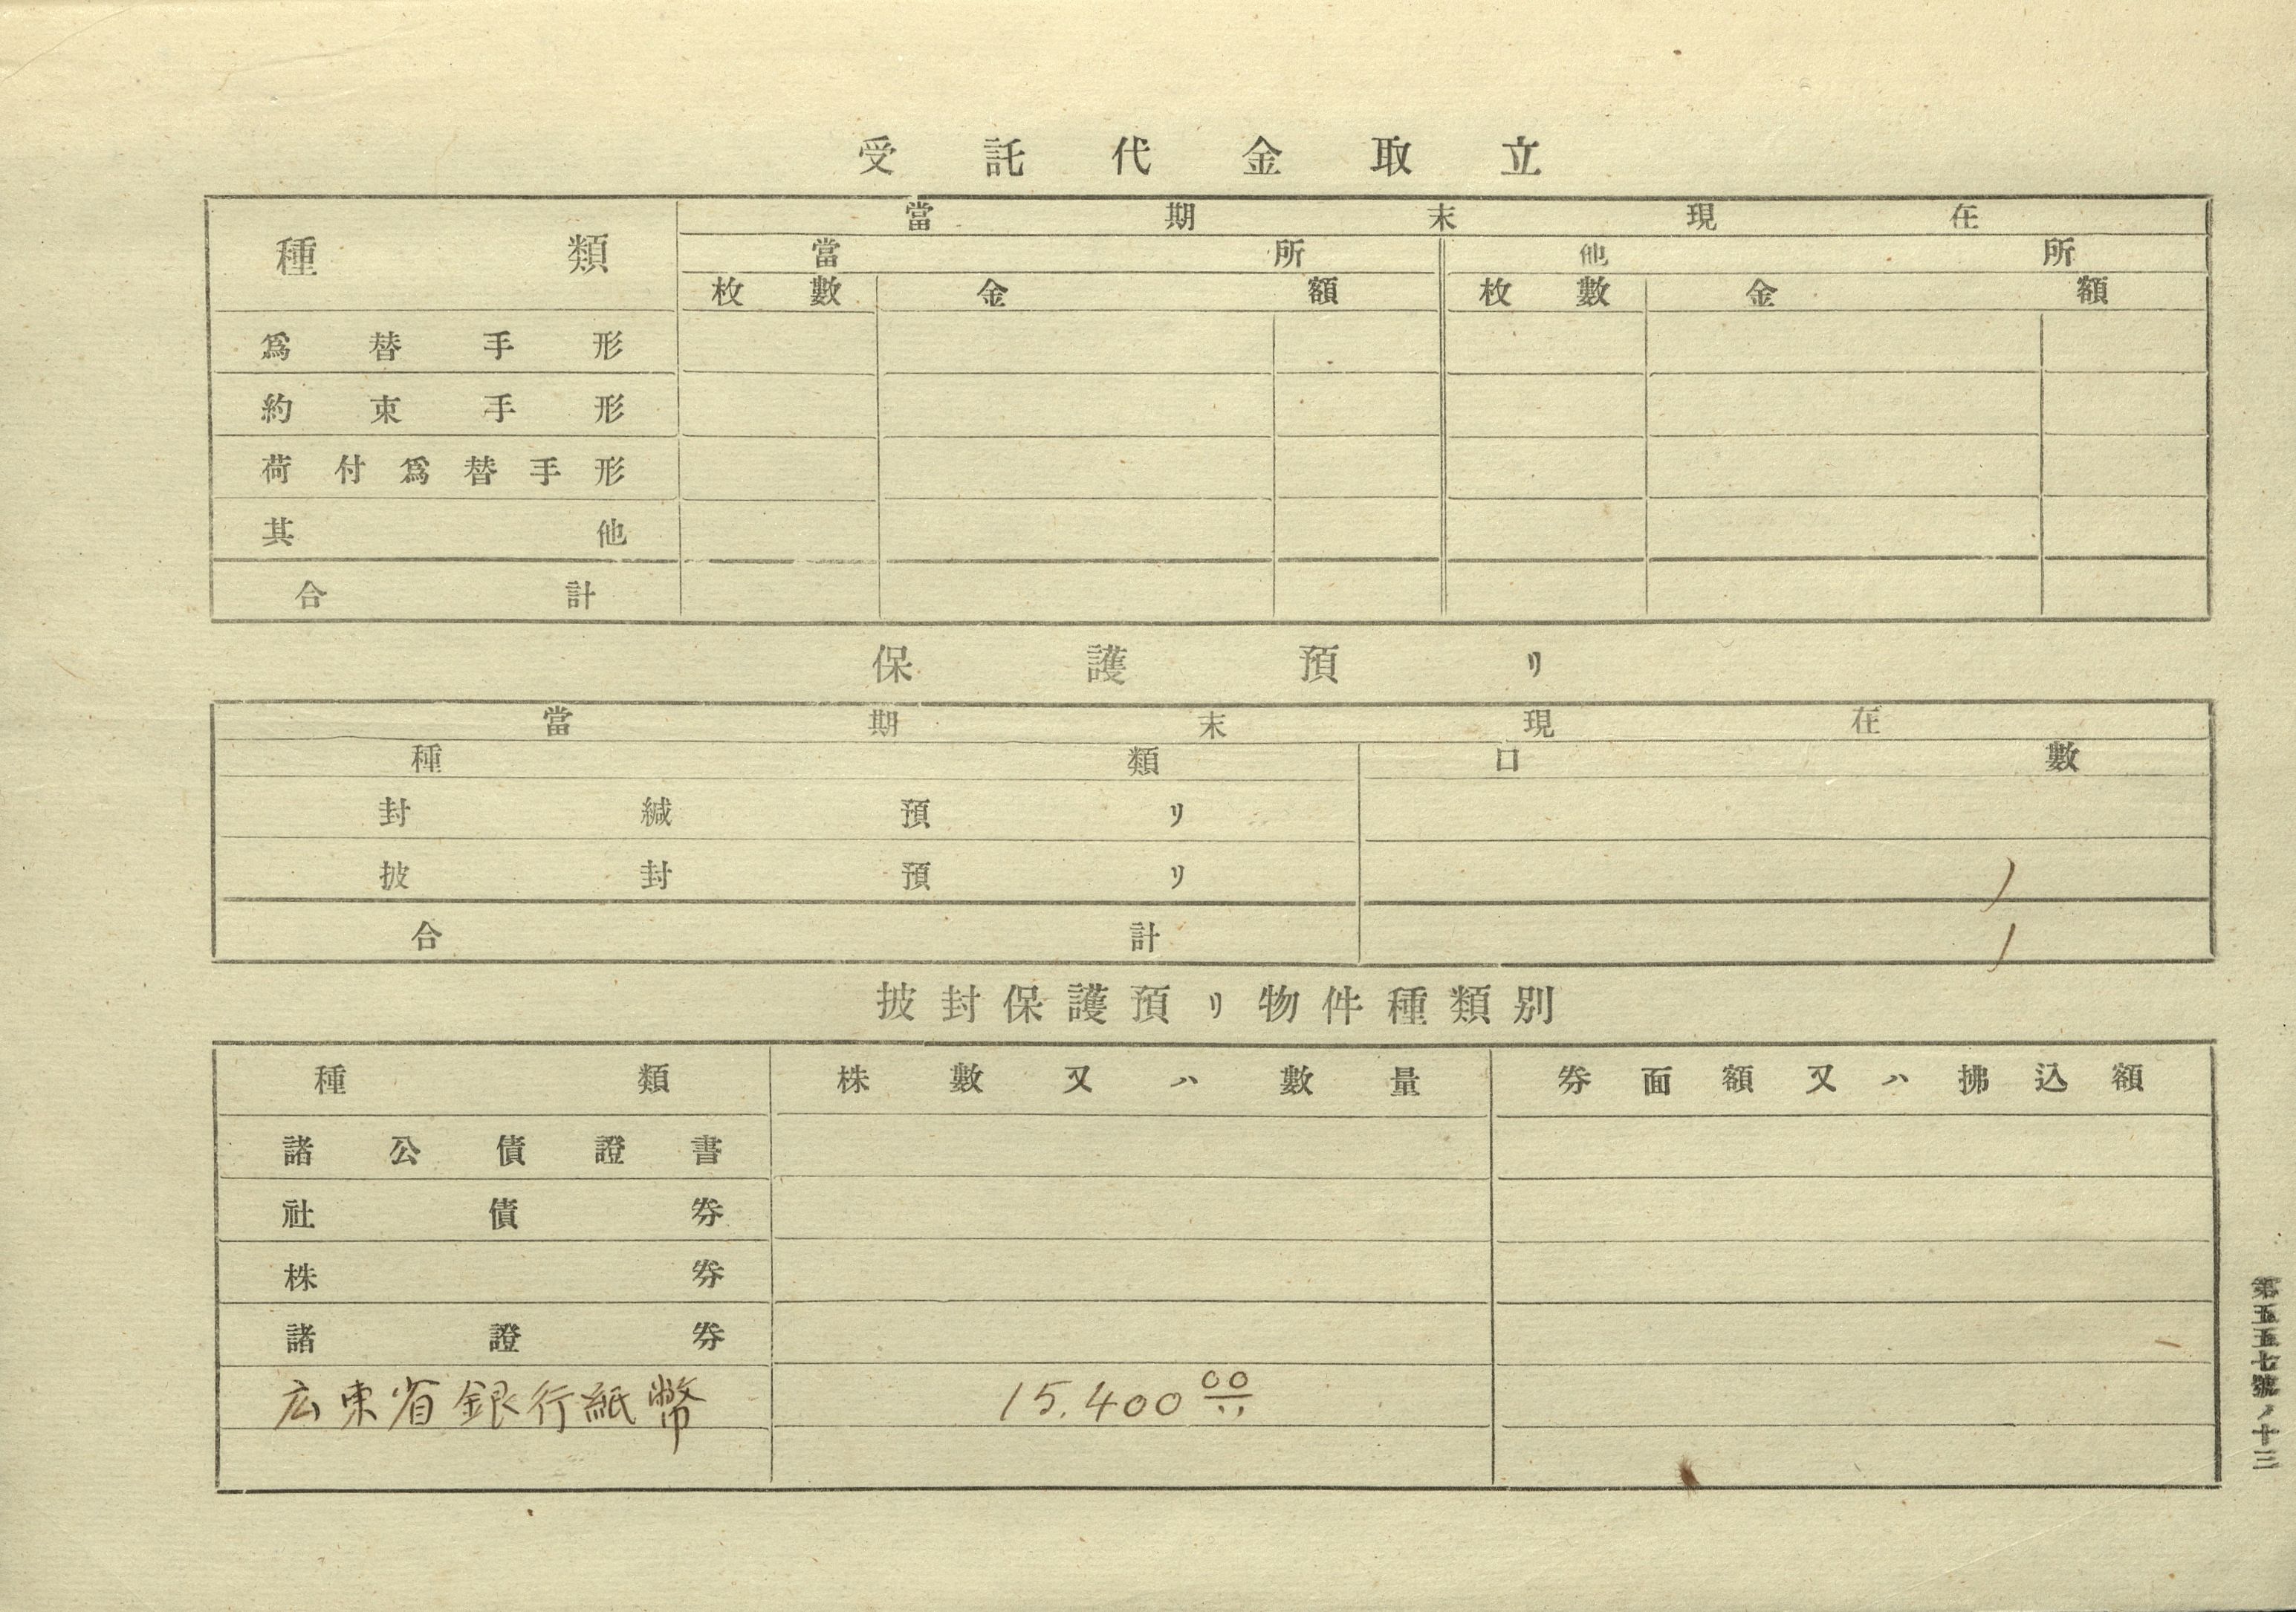 受託代金取立
種類 當期末現在
當所 他所
枚數 金額 枚數 金額
爲替手形
約束手形
荷付爲替手形
其他
合計
保護預リ
當期末現在
種類 口數
封緘預リ
披封預リ 1
合計 1
披封保護預リ物件種類別
種類 株數又ハ數量 券面額又ハ拂込額
諸公債證書
社債券
株券
諸證券
広東省銀行紙幣 15.400 00
第五五七號ノ十三